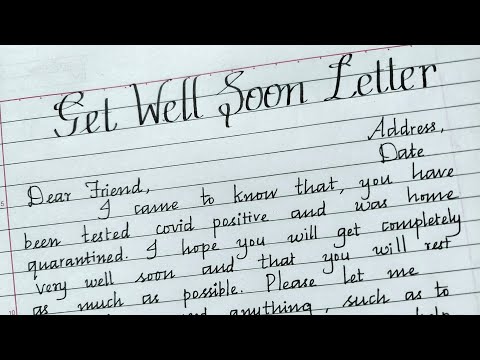 Get Well Soon Letter
Address,
Date
Dear Friend,
I came to know that, you have
been tested covid positive and was home
quarantined. I hope you will get completely
very well soon and that you will rest
as much as possible. Please let me
anything, such as to